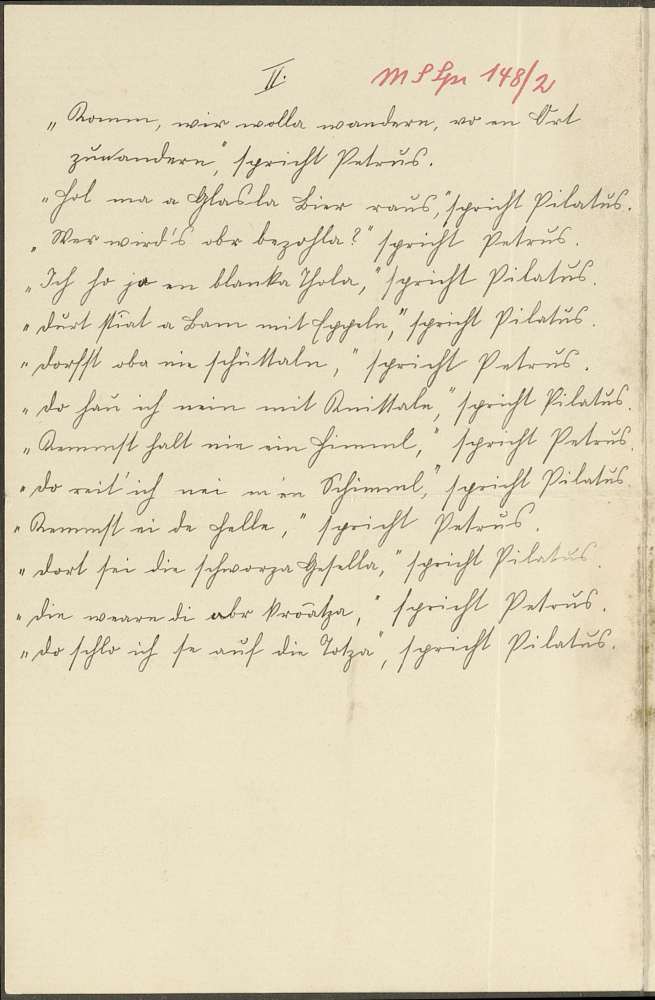 II.
MS Spr 148/2
„Komm, wir wolla wandern, vo en Ort
zunandern", spricht Petrus.
„Hol ma a Glasla Bier raus," spricht Pilatus.
„Wer wird's obr bezohla?" spricht Petrus.
„Ich ho jo en blanka Thola," spricht Pilatus.
„Durt stiat a Bam mit Eppeln," spricht Pilatus.
„Dorfst oba nie schüttaln," spricht Petrus.
„Do hau ich nein mit Knittaln," spricht Pilatus.
„Kemmst halt nie ein Himml," spricht Petrus.
„Do reit' ich nei m'en Schimml," spricht Pilatus.
„Kemmst ei de Helle," spricht Petrus.
„Dort sei die schworza Gesella," spricht Pilatus.
„Die wearn di obr kroatza," spricht Petrus.
„Do schlo ich se auf die Totza", spricht Pilatus.